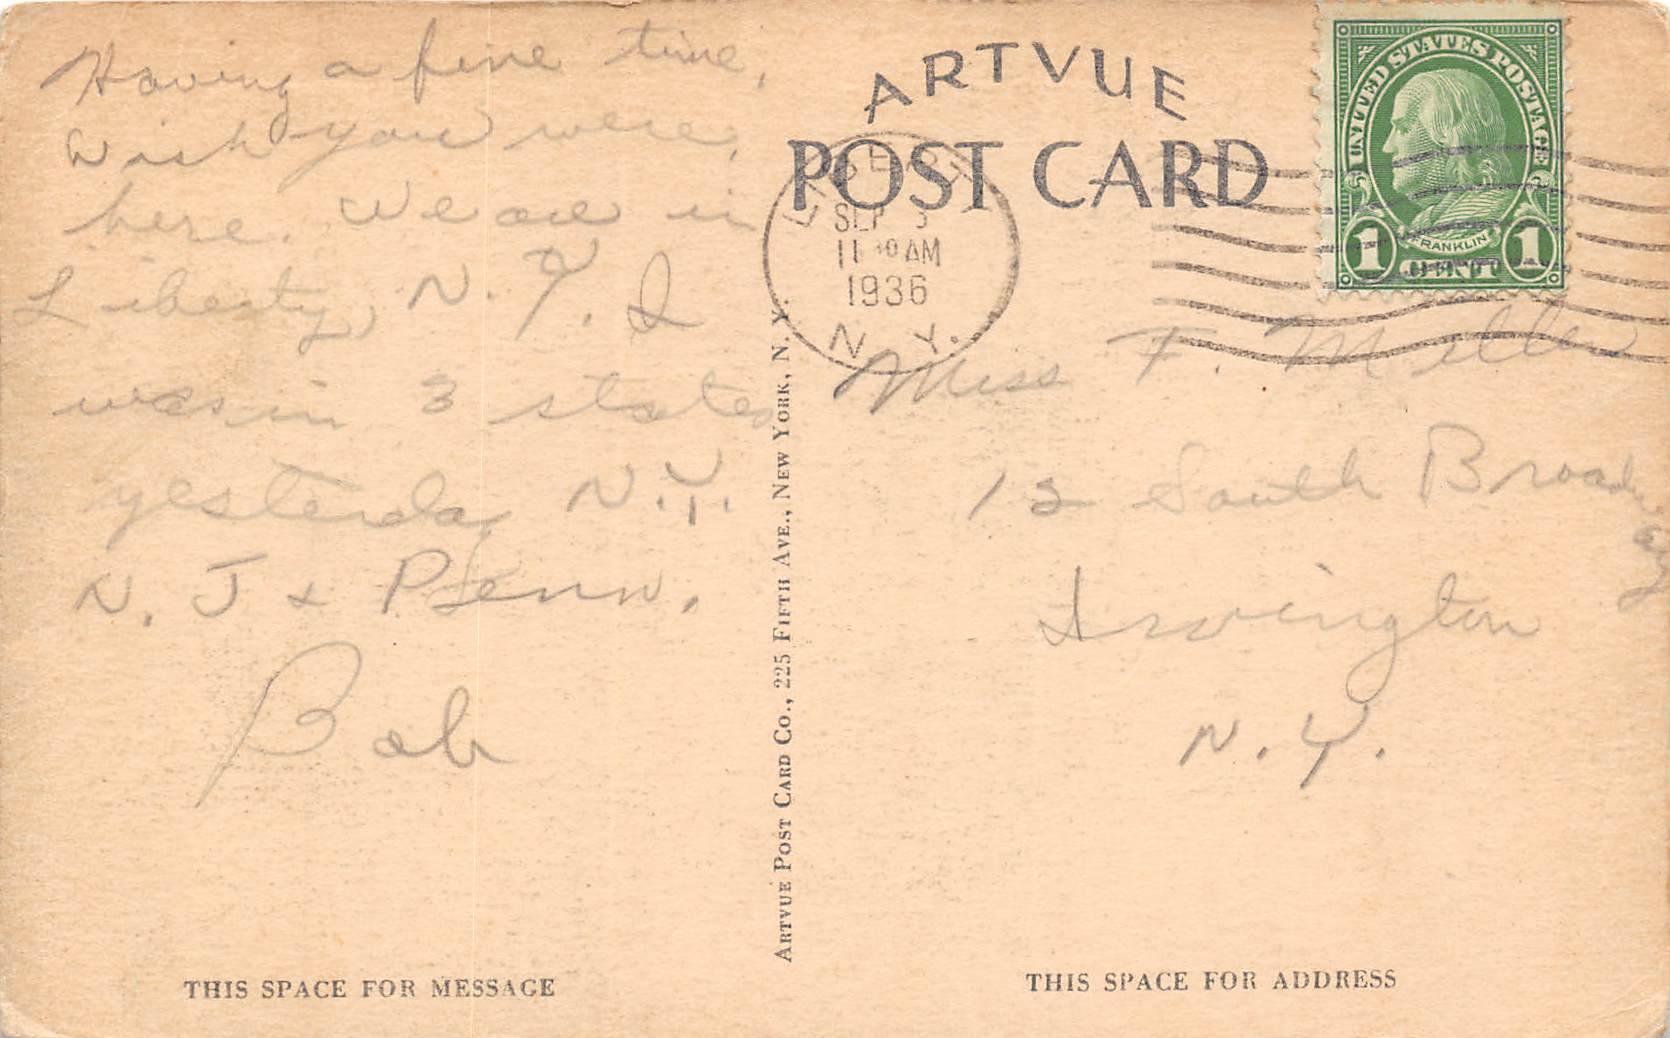 Having a fine time,
Wish you were,
here. We are in
Liberty, N.Y. I
was in 3 states
yesterday N.Y.
N. J & Penn.
Bob
THIS SPACE FOR MESSAGE
ARTVUE POST CARD CO., 225 FIFTH AVE., NEW YORK, N. Y.
ARTVUE
POST CARD
SEP
11 30 AM
1936
N. Y.
UNITED STATES POSTAGE
FRANKLIN
1 CENT 1
Miss F. Miller
12 South Broadway
Irvington
N.Y.
THIS SPACE FOR ADDRESS